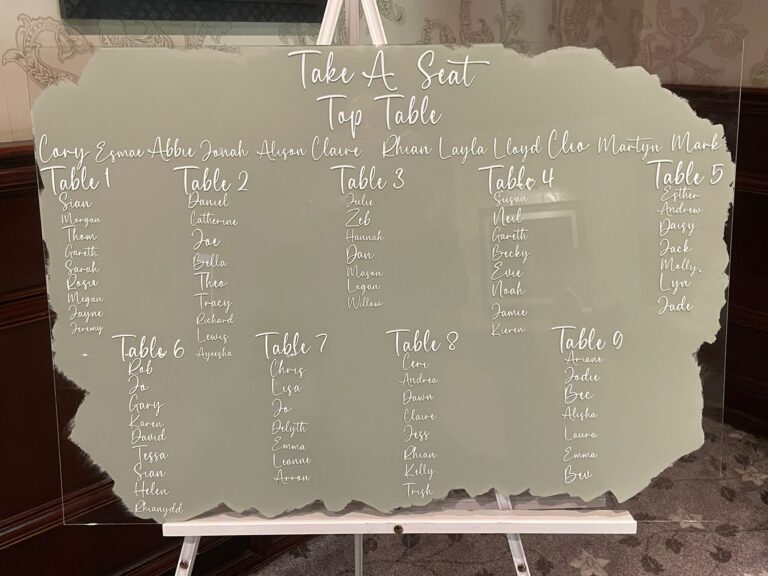 Take A Seat
Top Table
Cory Esmae Abbie Jonah Alison Claire Rhian Layla Lloyd Clio Martyn Mark
Table 1
Sian
Morgan
Thom
Gareth
Sarah
Rosie
Megan
Jayne
Jeremy
Table 2
Daniel
Catherine
Joe
Bella
Theo
Tracy
Richard
Lewis
Ayesha
Table 3
Julie
Zeb
Hannah
Dan
Mason
Logan
Willow
Table 4
Susan
Neil
Gareth
Becky
Evie
Noah
Jamie
Kieren
Table 5
Esther
Andrew
Daisy
Jack
Molly
Lyn
Jade
Table 6
Rob
Jo
Gary
Karen
David
Tessa
Sian
Helen
Rhianydd
Table 7
Chris
Lisa
Jo
Delyth
Emma
Leanne
Arron
Table 8
Ceri
Andrea
Dawn
Claire
Jess
Rhian
Kelly
Trish
Table 9
Ariane
Jodie
Bee
Alisha
Laura
Emma
Bev